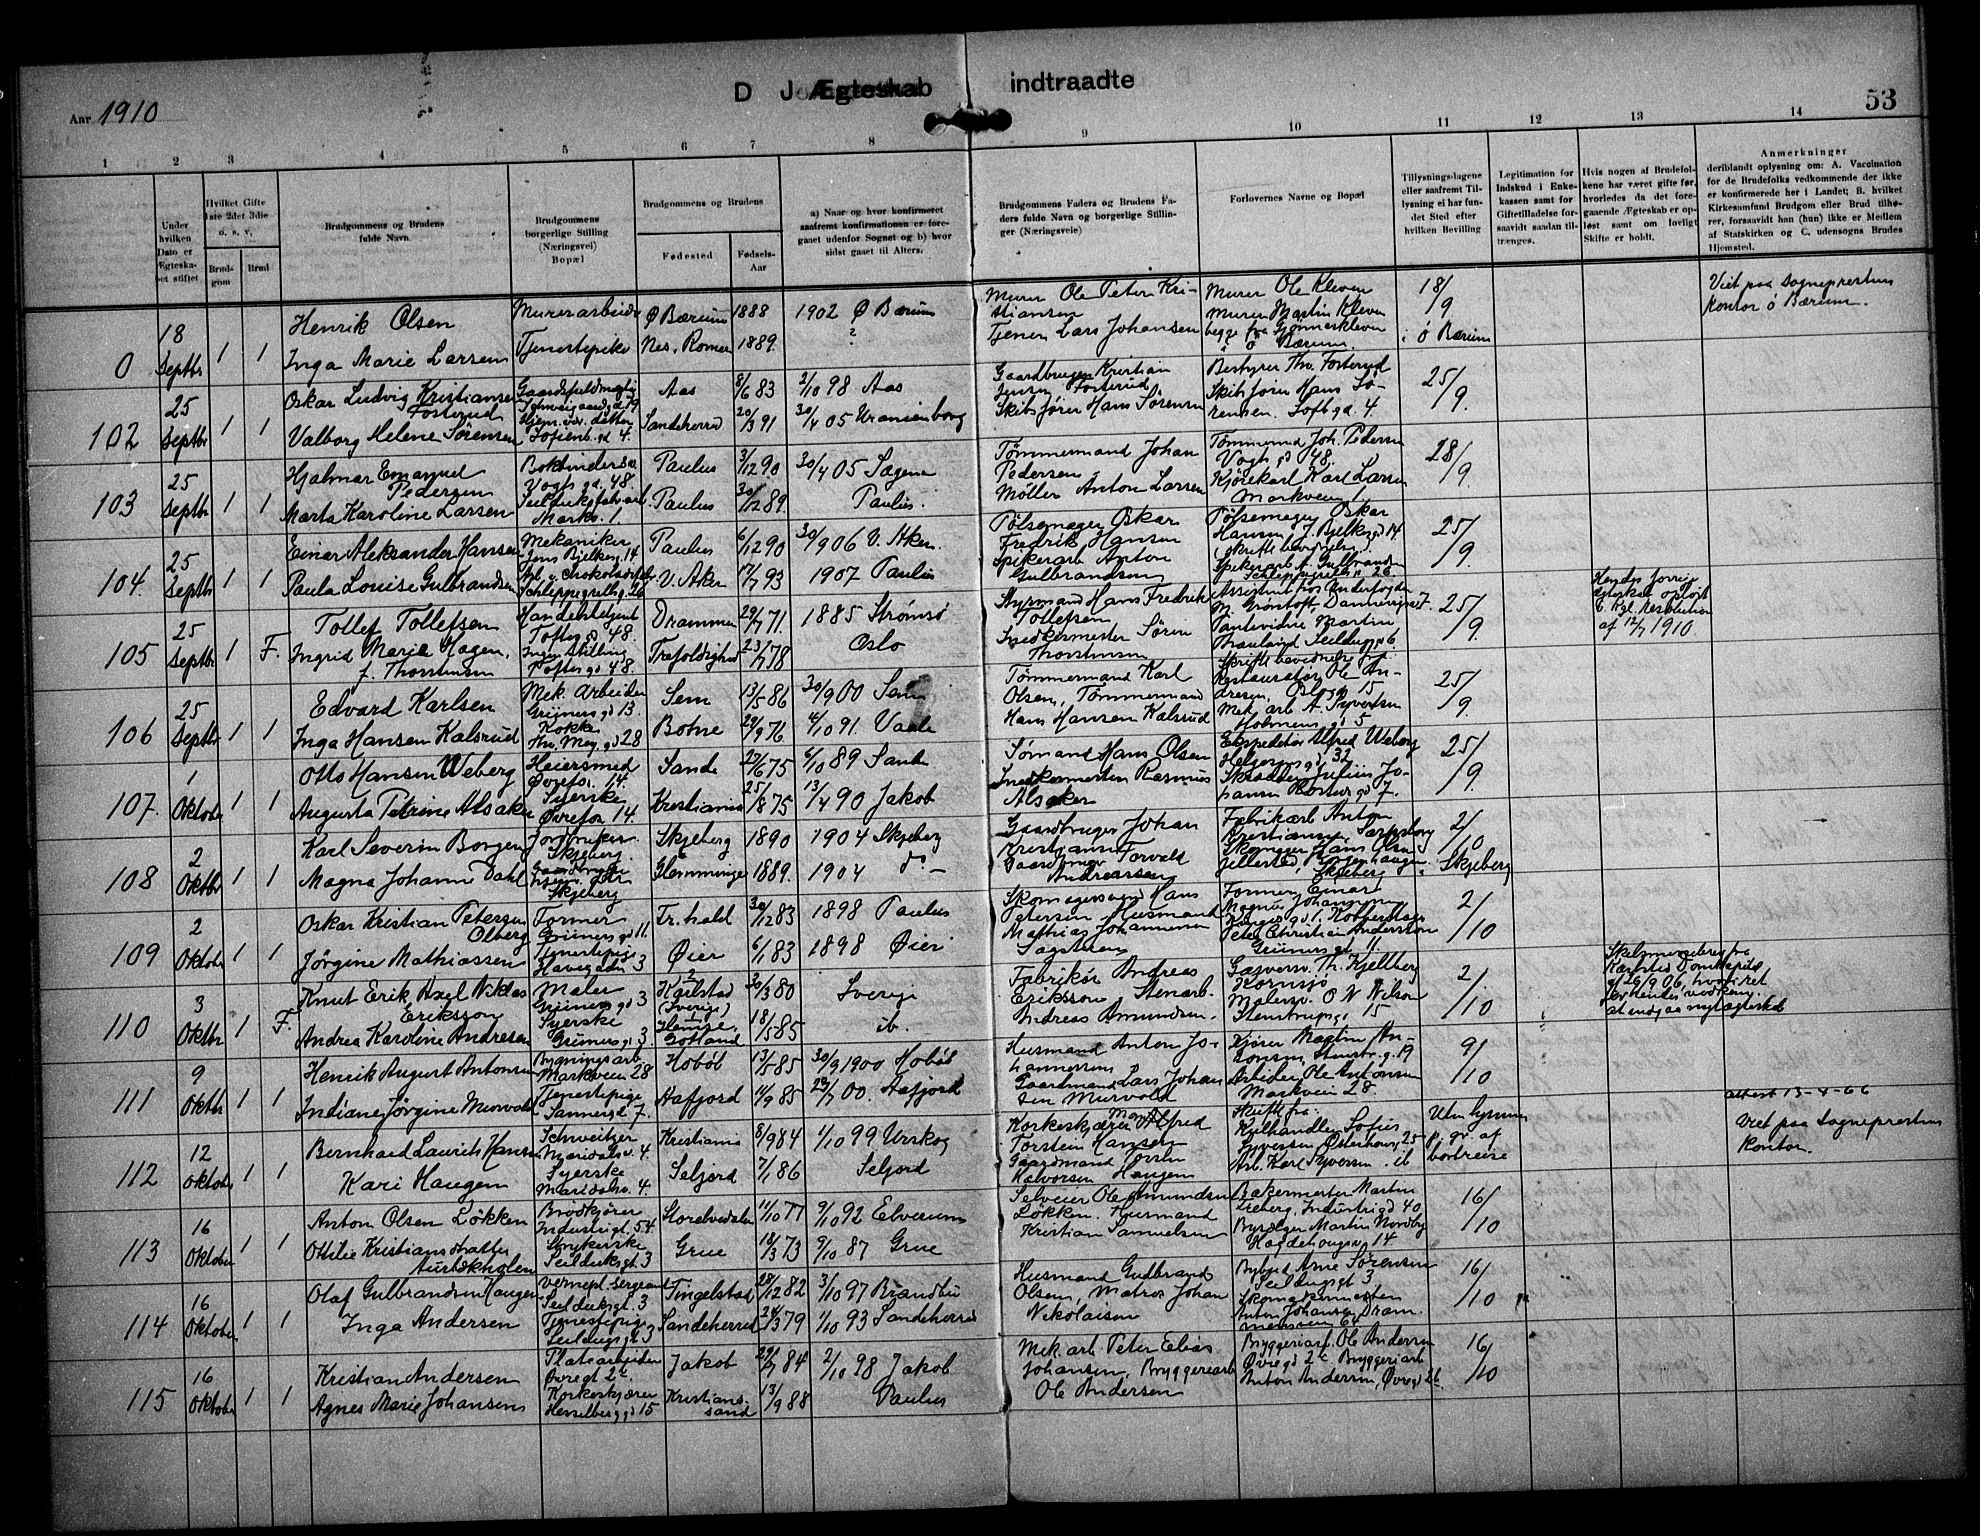 Aar 1910
D J Ægteskab indtraadte
53
1 2 3 4 5 6 7 8 9 10 11 12 13 14
Under hvilken Dato er Ægteskabet stiftet
Hvilket Gifte 1ste 2det 3die o. s. v.
Brudgom Brud
Brudgommens og Brudens fulde Navn.
Brudgommens borgerlige Stilling (Næringsvei) Bopæl
Brudgommens og Brudens
Fødested Fødsels-Aar
a) Naar og hvor konfirmeret saafremt konfirmationen er foregaaet udenfor Sognet og b) hvor sidst gaaet til Alters.
Brudgommens Faders og Brudens Faders fulde Navn og borgerlige Stillinger (Næringsveie)
Forlovernes Navne og Bopæl
Tillysningsdagene eller saafremt Tillysning ei har fundet Sted efter hvilken Bevilling
Legitimation for Indskud i Enkekassen samt for Giftetilladelse forsaavidt saadan tiltrænges.
Hvis nogen af Brudefolkene har været gifte før, hvorledes da det foregaaende Ægteskab er opløst samt om lovligt Skifte er holdt.
Anmerkninger deriblandt oplysning om: A. Vaccination for de Brudefolks vedkommende der ikke er konfirmerede her i Landet; B. hvilket Kirkesamfund Brudgom eller Brud tilhører, forsaavidt han (hun) ikke er Medlem af Statskirken og C. udensogns Brudes Hjemsted.
0 18 Septbr 1 1
Henrik Olsen Murerarbeider Ø Bærum 1888 1902 Ø Bærum
Inga Marie Larsen Tjenestepike Nes, Romer 1889. ?
Murer Ole Peter Kristiansen
Tjener Lars Johansen
Murer Ole Kleven
Murer Martin Kleven
begge fra Gjønneskleven
i ø Bærum.
18/9 i Ø Bærum
Viet paa Sogneprestens
kontor Ø Bærum.
102 25 Septbr 1 1
Oskar Ludvig Kristiansen Fosterud Aas 8/6 83 2/10 98 Aas
Valborg Helene Sørensen Sofienb. gd 4. Sandeherred 20/3 91 30/4 05 Uranienborg
Gaardbruger Kristian
Jensen Fosterud
Skibsfører Hans Sørensen
Bestyrer Th. Fosterud
Skibsfører Hans Sørensen. Toftgd. 4.
25/9.
103 25 Septbr 1 1
Hjalmar Emanuel Pedersen Bokbindersv. Vogts gd. 48. Paulus 3/12 90 30/4 05 Sagene
Marta Karoline Larsen Markv. 1. Paulus 30/12 89. Paulus.
Tømmermand Johan
Pedersen
Møller Anton Larsen
Tømmermand Joh. Pedersen
Vogts gd 48.
Kjørekarl Karl Larsen
Markveien 1.
28/9
104. 25 Septbr 1 1
Einar Aleksander Hansen Mekaniker Jens Bjelkesg. 14 Paulus 6/12 90 30/9 06 V. Aker.
Paula Louise Gulbrandsen V. Aker 17/7 93 1907 Paulus
Pølsemager Oskar
Fredrik Hansen
Spikerarb Anton
Gulbrandsen
Pølsemager Oskar
Hansen, J. Bjelkesgd 14
Spikerarb A. Gulbrandsen
25/9
105 25 Septbr 1 F.
Tollef Tollefsen Handelsagent Toftes gd. 48. Drammen 29/7 71. 1885 Strømsø
Ingrid Marie Hagen, f. Thorstensen Ingen Stilling Toftes gd 48 Trefoldighed 23/7 78 Oslo
Styrmand Hans Fredrik
Tollefsen
Snedkermester Søren
Thorstensen
25/9.
af 12/7 1910.
106 25 Septbr 1 1
Edvard Karlsen Mek. Arbeider Grüners gd 13. Sem 13/5 86 30/9 00 Sem
Inga Hansen Kalsrud Kokke Th. Mey. gd 28 Botne 29/9 76 4/10 91. Vaale
Tømmermand Karl
Olsen, Tømmermand
Hans Hansen Kalsrud
Restauratør Ole Andresen, Oslo gd 15
Mek. arb A. Syvertsen
Holmens gd 5
25/9.
107. 1 Oktober 1 1
Otto Hansen Weberg Heiersmed Øvrefos. 14. Sande 27/6 75 6/10 89 Sande
Augusta Petrine Alsaker Syerske Øvrefos 14. Kristiania 25/8 75 13/4 90 Jakob
Sømand Hans Olsen
Snedkermester Rasmus
Alsaker
Ekspeditør Alfred Weberg
Helgesens gd 32
Skrædder Julius Johansen
25/9.
108 2 Oktbr 1 1
Karl Severin Borgen Jordbruker Skjeberg. Skjeberg 1890 1904 Skjeberg
Magna Johanne Dahl Skjeberg Glemminge 1889. 1904 do. –
Gaardbruger Johan
Kristiansen
Gaardbruger Torvald
Andreassen
Fabrikarb. Anton
Kristiansen, Sarpsborg
Skomager Hans Olsen
2/10 i Skjeberg
109 2 Oktober 1 1
Oskar Kristian Petersen Olberg Former Grüners gd 11. Fr. hald 30/12 83 1898 Paulus
Jørgine Mathiassen Tjenestepige Havegaden 3 Øier 6/1 83 1898 Øier
Skomagersvend Hans
Petersen, Husmand
Mathias Johannesen
Sagstuen
Former Einar
Magnus Johansen
Peter Christian Anderssøn
Grüners gd 11
2/10
110 3 Oktbr 1 F.
Knut Erik Axel Niklas Eriksson Maler Grüners gd 3 Karlstad (Sverige) 30/3 80 Sverige
Andrea Karoline Andresen Syerske Grüners gd 3 Hemse, Gotland 18/5 85 ib.
Fabrikør Andreas
Eriksson, Stenarb.
Andreas Amundsen.
Gasverv. Th. Kjellberg
Kornsjø
Malersv. O N Nilson
Stenstrupsg. 15
2/10
Skilsmissebrev fra
Karlstad Domkapitel
111 9 Oktbr 1 1
Henrik August Antonsen Bygningsarb. Markveien 28 Hobøl 13/5 85 30/9 1900 Hobøl
Indiane Jørgine Murvold Tjenestepige Sannergd 7. Aafjord 11/9 85 29/7 00. Aafjord
Husmand Anton Johannessen
Gaardmand Lars Johansen Murvold
Kjører Martin Antonsen, Stenstr. g. 19
Arbeider Ole Antonsen
Markveien 28
9/10
attest 13-4-66
112 12 Oktober 1 1
Bernhard Laurits Hansen Schweitzer Maridalsv. 4 Kristiania 8/9 84 1/10 99 Urskog
Kari Haugen Syerske Maridalsv. 4. Seljord 7/1 86 Seljord
Korkeskjærer Alfred
Torstein Hansen
Gaardmand Torstein
Halvorsen Haugen
Arb. Karl Syversen. ib
Uten lysning
p. gr. af
bortreise
Viet paa Sogneprestens
Kontor.
113 16 Oktober 1 1
Anton Olsen Løkken Brødkjører Industrigt. 54 Storelvedalen 11/10 77 9/10 92 Elverum
Othilie Kristiansdatter Aurtokholen Strykerske Seildugsgt 3 Grue 18/3 73 9/10 87 Grue
Selveier Ole Amundsen
Løkken. Husmand
Kristian Samuelsen
Bakermester Martin
Freberg, Industrigd 40
Bysælger Martin Nordby
Hagdehougsv. 14
16/10
114 16 Oktober 1 1
Olaf Gulbrandsen Haugen Vernepl. sergeant Seildugsgt. 3 Tingelstad 28/12 82 3/10 97 Brandbu
Inga Andersen Tjenestepige Seildugsgt 3 Sandeherred 24/3 79 1/10 93 Sandeherred
Husmand Gudbrand
Olsen, Matros Johan
Nikolaisen
Bybud Arne Sørensen
Seildugsgt 3
Skomagermester
Anton Johansen Drammensveien 64
16/10
115 16 Oktober 1 1
Kristian Andersen Platearbeider Øvregt 2c. Jakob 29/7 84 2/10 98 Jakob
Agnes Marie Johansen Korkeskjærer Hesselbergs gd 15 Kristianssand 13/9 88 Paulus
Mek. arb. Peter Elias
Johansen, Bryggeriarb
Ole Andersen
Bryggeriarb. Ole Andersen
Øvregd 2c Bryggeriarb
Anton Andersen, Øvregd 2c.
16/10